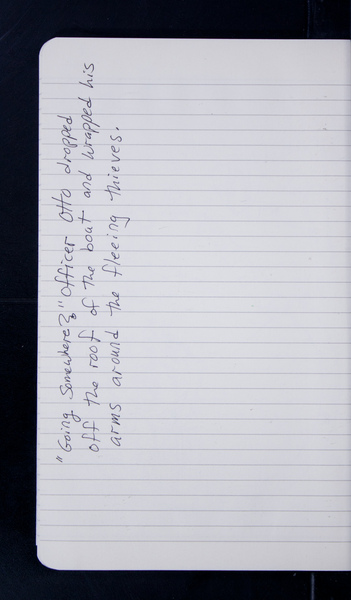 "Going Somewhere?" Officer Otto dropped
off the roof of the boat and wrapped his
arms around the fleeing thieves.